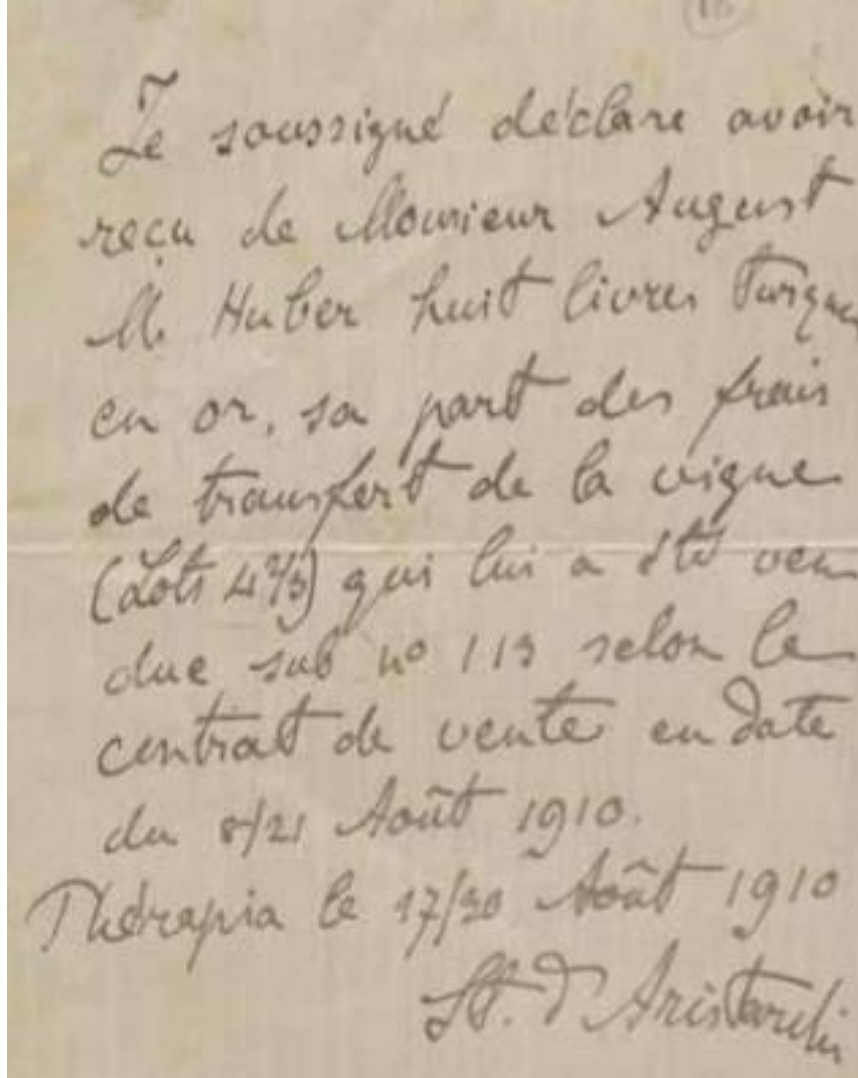 Je soussigné déclare avoir
reçu de Monsieur August
M. Huber huit livres Turques
en or, sa part des frais
de transfert de la vigne
(Lots 4⅔) qui lui a été ven
due sub nº 113 selon le
contrat de vente en date
du 8/21 Août 1910.
Thérapia le 17/30 Août 1910
St. d'Aristarchi